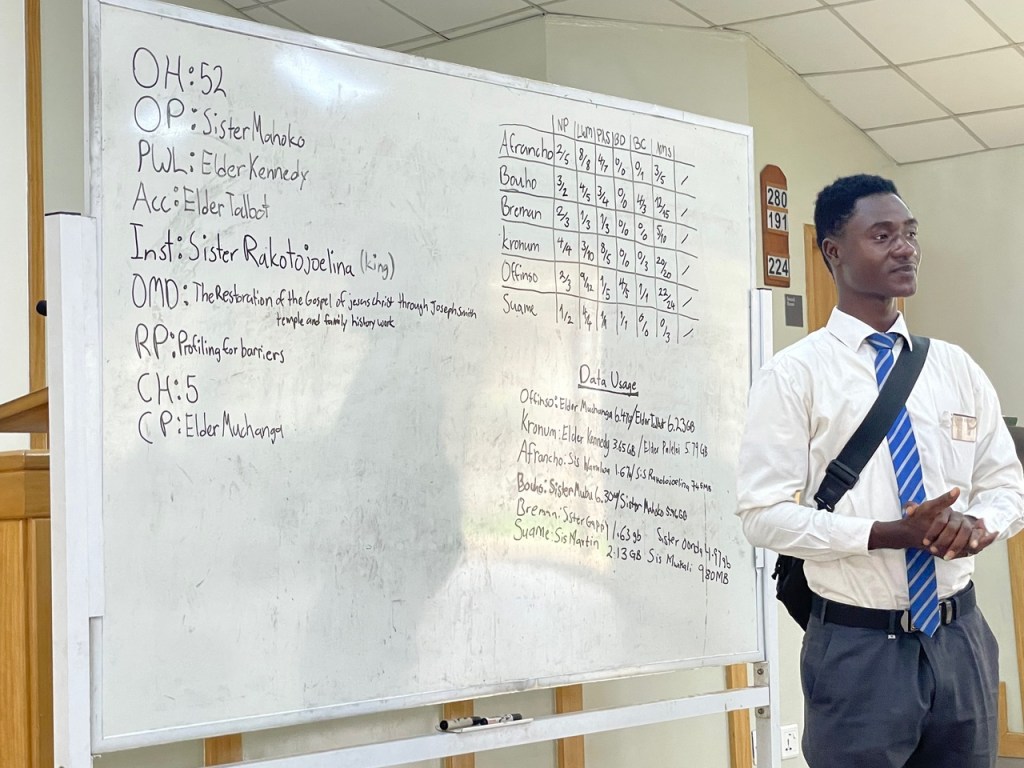 OH: 52
OP: Sister Mahoko
PWL: Elder Kennedy
Acc: Elder Talbot
Inst: Sister Rakotojoelina (king)
OMD: The Restoration of the Gospel of jesus christ through Joseph smith
temple and family history work
RP: Profiling for barriers
CH: 5
CP: Elder Muchanga
NP LWM PAS BD BC NMS
Afrancho 2/5 8/8 4/7 0/0 0/1 3/5 /
Bouho 3/2 4/5 3/4 0/0 4/3 12/15 /
Breman 2/3 1/3 1/5 0/0 0/0 5/10 /
Kronum 4/4 3/10 8/5 0/0 0/3 20/20 /
Offinso 3/3 9/12 1/5 4/5 1/1 22/24 /
Suame 1/2 4/4 1/1 0/0 0/3 /
Data Usage
Offinso: Elder Muchanga Elder Talbot 6.23GB
Kronum: Elder Kennedy 3.65GB / Elder 5.79GB
Afrancho: Sis 1.67/ Sis Rakotojoelina
Bouho: Sister Mubu 6.30 / Sister Mahoko
Breman: Sister 1.63gb Sister 4.97gb
Suame: Sis Martin 2.13GB Sis 9.80MB
280
191
224